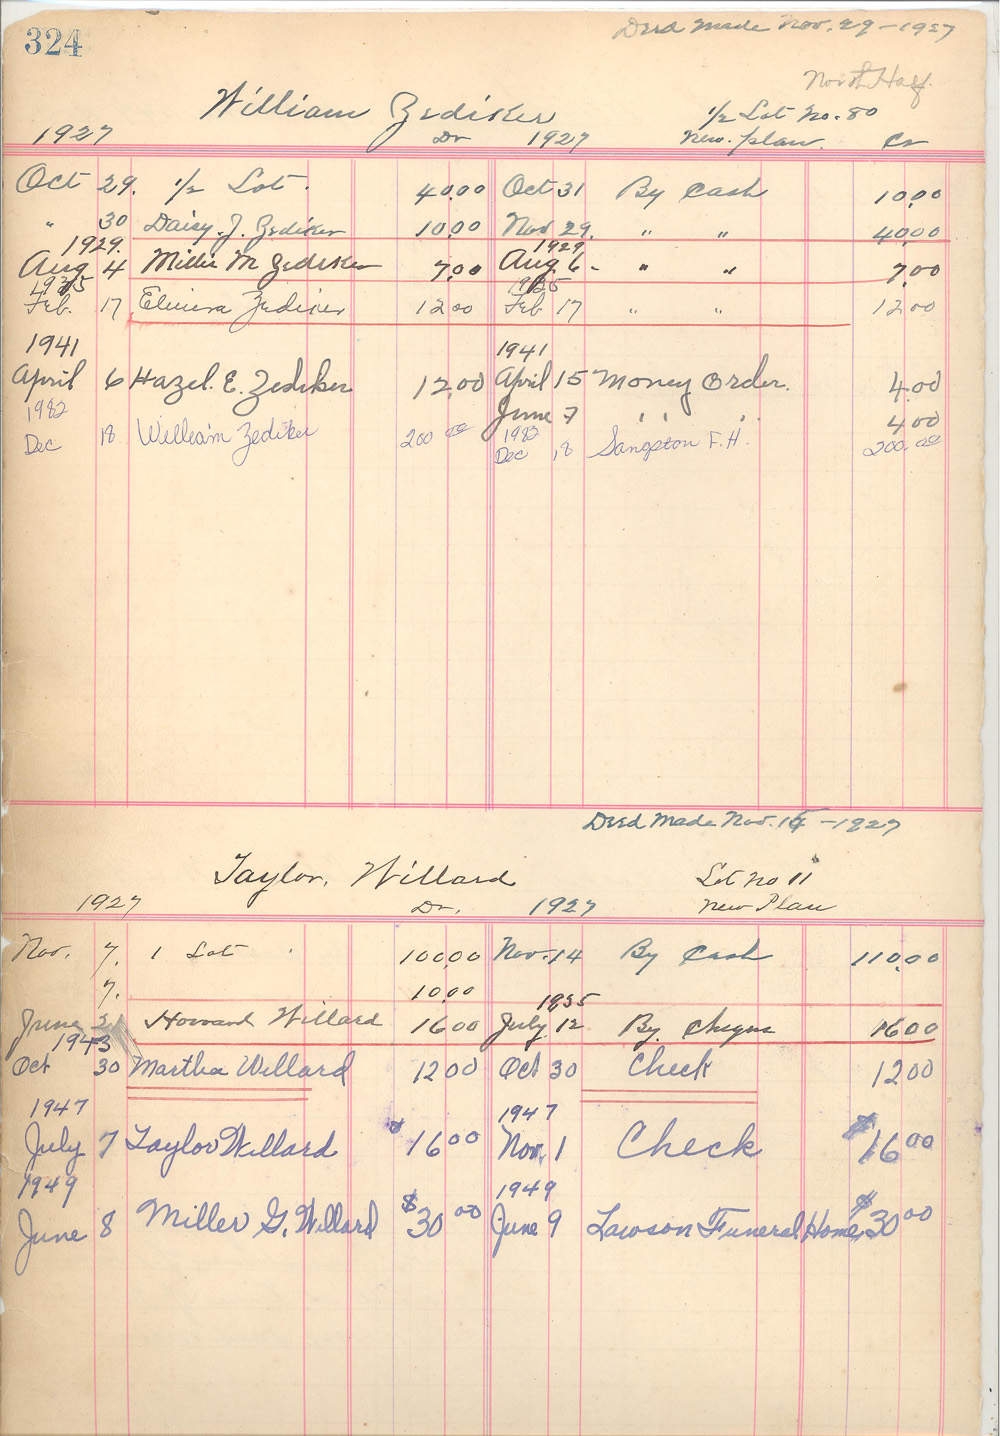 324
Deed Made Nov. 29-1927
North Half.
William Zediker 1/2 Lot No. 80
1927 Dr 1927 New. plan. Cr
Oct 29. 1/2 Lot. 40.00 Oct 31 By Cash 10.00
" 30 Daisy. J. Zediker 10.00 Nov 29. " " 40.00
1929. 1929
Aug 4 Millie M Zediker 7.00 Aug. 6- " " 7.00
1935 1935
Feb. 17 Elmira Zediker 12 00 Feb 17 " " 12.00
1941 1941
April 6 Hazel. E. Zediker 12.00 April 15 Money Order. 4.00
June 7 " " 4.00
1982 1982
Dec 18 William Zediker 200 00 Dec 18 Sangston F.H. 200.00
Deed Made Nov. 15-1927
Taylor, Willard Lot No 11
1927 Dr. 1927 New Plan
Nov. 7. 1 Lot 100.00 Nov. 14 By Cash 110.00
7. 10.00
1935
June Howard Willard 16 00 July 12 By. Cheque 16.00
1943
Oct 30 Martha Willard 12 00 Oct 30 Check 12 00
1947 1947
July 7 Taylor Willard $16 00 Nov. 1 Check $16 00
1949 1949
June 8 Miller G. Willard $30 00 June 9 Lawson Funeral Home $30 00